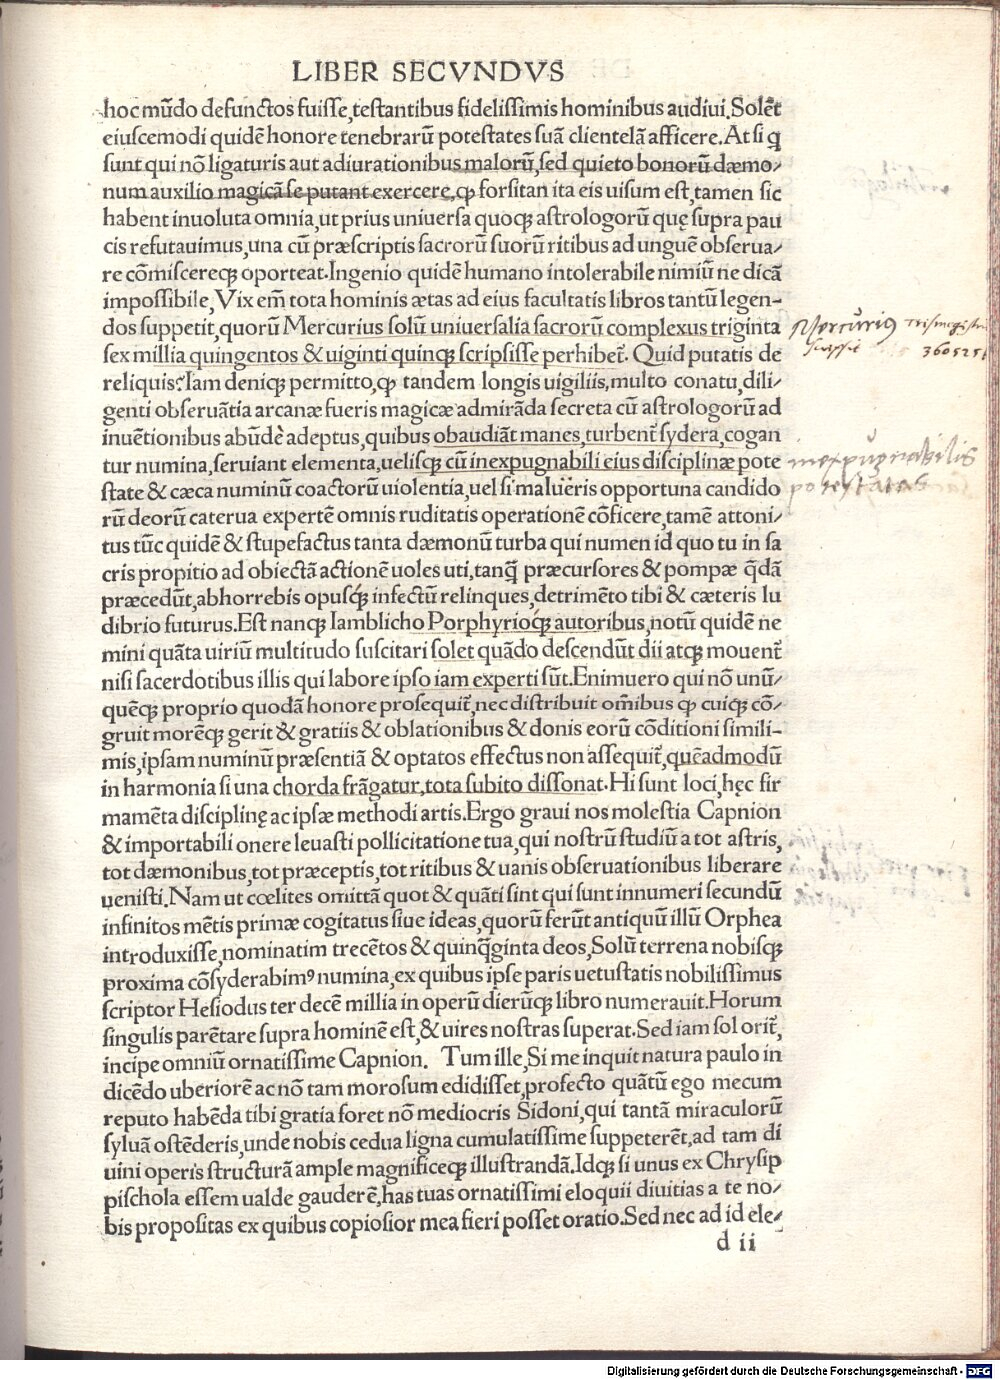 LIBER SECVNDVS
hoc mũdo defunctos fuisse, testantibus fidelissimis hominibus audiui. Solẽt
eiuscemodi quidẽ honore tenebrarũ potestates suã clientelã afficere. At si q
sunt qui nõ ligaturis aut adiurationibus malorũ, sed quieto bonorũ dæmo⸗
num auxilio magicã se putant exercere, ꝙ forsitan ita eis uisum est, tamen sic
habent inuoluta omnia, ut prius uniuersa quoqꝫ astrologorũ quę supra pau
cis refutauimus, una cũ præscriptis sacrorũ suorũ ritibus ad unguẽ obserua⸗
re cõmiscereqꝫ oporteat. Ingenio quidẽ humano intolerabile nimiũ ne dicã
impossibile, Vix em̃ tota hominis ætas ad eius facultatis libros tantũ legen-
dos suppetit, quorũ Mercurius solũ uniuersalia sacrorũ complexus triginta
sex millia quingentos & uiginti quinqꝫ scripsisse perhibet᷑. Quid putatis de
reliquis? Iam deniqꝫ permitto, ꝙ tandem longis uigiliis, multo conatu, dili⸗
genti obseruãtia arcanæ fueris magicæ admirãda secreta cũ astrologorũ ad
inuẽtionibus abũdè adeptus, quibus obaudiãt manes, turbent᷑ sydera, cogan
tur numina, seruiant elementa, uelisqꝫ cũ inexpugnabili eius disciplinæ pote
state & cæca numinũ coactorũ uiolentia, uel si malueris opportuna candido
rũ deorũ caterua expertẽ omnis ruditatis operationẽ cõficere, tamẽ attoni⸗
tus tũc quidẽ & stupefactus tanta dæmonũ turba qui numen id quo tu in sa
cris propitio ad obiectã actionẽ uoles uti, tanq̃ præcursores & pompæ q̃dã
præcedũt, abhorrebis opusqꝫ infectũ relinques, detrimẽto tibi & cæteris lu
dibrio futurus. Est nanqꝫ Iamblicho Porphyrioqꝫ autoribus, notũ quidẽ ne
mini quãta uiriũ multitudo suscitari solet quãdo descendũt dii atqꝫ mouent᷑
nisi sacerdotibus illis qui labore ipso iam experti sũt. Enimuero qui nõ unũ⸗
quẽqꝫ proprio quodã honore prosequit᷑, nec distribuit om̃ibus ꝙ cuiqꝫ cõ⸗
gruit morẽqꝫ gerit & gratiis & oblationibus & donis eorũ cõditioni simili-
mis, ipsam numinũ præsentiã & optatos effectus non assequit᷑, quẽadmodũ
in harmonia si una chorda frãgatur, tota subito dissonat. Hi sunt loci, hęc fir
mamẽta disciplinę ac ipsæ methodi artis. Ergo graui nos molestia Capnion
& importabili onere leuasti pollicitatione tua, qui nostrũ studiũ a tot astris,
tot dæmonibus, tot præceptis, tot ritibus & uanis obseruationibus liberare
uenisti. Nam ut cœlites omittã quot & quãti sint qui sunt innumeri secundũ
infinitos mẽtis primæ cogitatus siue ideas, quorũ ferũt antiquũ illũ Orphea
introduxisse, nominatim trecẽtos & quinq̃ginta deos, Solũ terrena nobisqꝫ
proxima cõsyderabimꝰ numina, ex quibus ipse paris uetustatis nobilissimus
scriptor Hesiodus ter decẽ millia in operũ dierũqꝫ libro numerauit. Horum
singulis parẽtare supra hominẽ est, & uires nostras superat. Sed iam sol orit᷑,
incipe omniũ ornatissime Capnion. Tum ille, Si me inquit natura paulo in
dicẽdo uberiorẽ ac nõ tam morosum edidisset, profecto quãtũ ego mecum
reputo habẽda tibi gratia foret nõ mediocris Sidoni, qui tantã miraculorũ
syluã ostẽderis, unde nobis cedua ligna cumulatissime suppeterẽt, ad tam di
uini operis structurã ample magnificeqꝫ illustrandã. Idqꝫ si unus ex Chrysip
pischola essem ualde gauderẽ, has tuas ornatissimi eloquii diuitias a te no⸗
bis propositas ex quibus copiosior mea fieri posset oratio. Sed nec ad id ele⸗
d ii
Mercurius Trismegistus
scripsit 360525
inexpugnabilis
potestatas
Digitalisierung gefördert durch die Deutsche Forschungsgemeinschaft - DFG